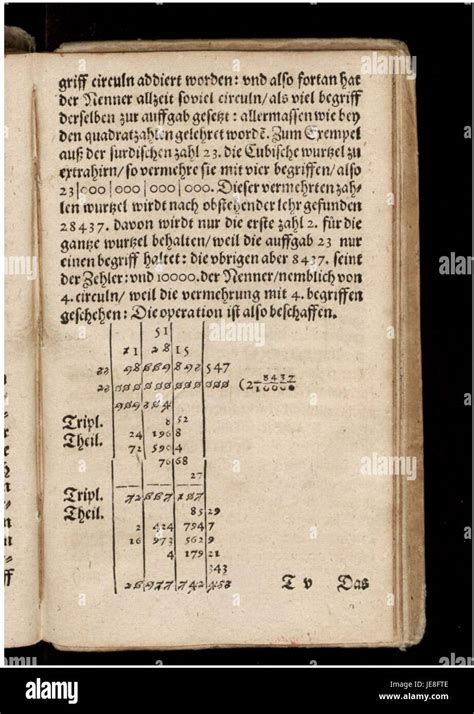 griff circuln addiert worden: vnd also fortan hat
der Nenner allzeit soviel circuln/ als viel begriff
derselben zur auffgab gesetzt: allermassen wie bey
den quadratzahlen gelehret wordē. Zum Exempel
auß der surdischen zahl 23. die Cubische wurtzel zu
extrahirn/ so vermehre sie mit vier begriffen/ also
23|000|000|000|000. Dieser vermehrten zah-
len wurtzel wirdt nach obstehender lehr gefunden
28437. davon wirdt nur die erste zahl 2. für die
gantze wurtzel behalten/ weil die auffgab 23 nur
einen begriff haltet: die vbrigen aber 8437. seint
der Zehler: vnd 10000. der Nenner/ nemblich von
4. circuln/ weil die vermehrung mit 4. begriffen
geschehen: Die operation ist also beschaffen.
51
21 28 15
547
(2 8437/10000
8 52
Tripl. 24 196 8
Theil. 72 590 4
70 68
27
Tripl.
Theil. 85 29
2 424 794 7
16 973 562 9
4 179 21
343
T v Das
alamy
alamy
Image ID: JE8FTE
www.alamy.com